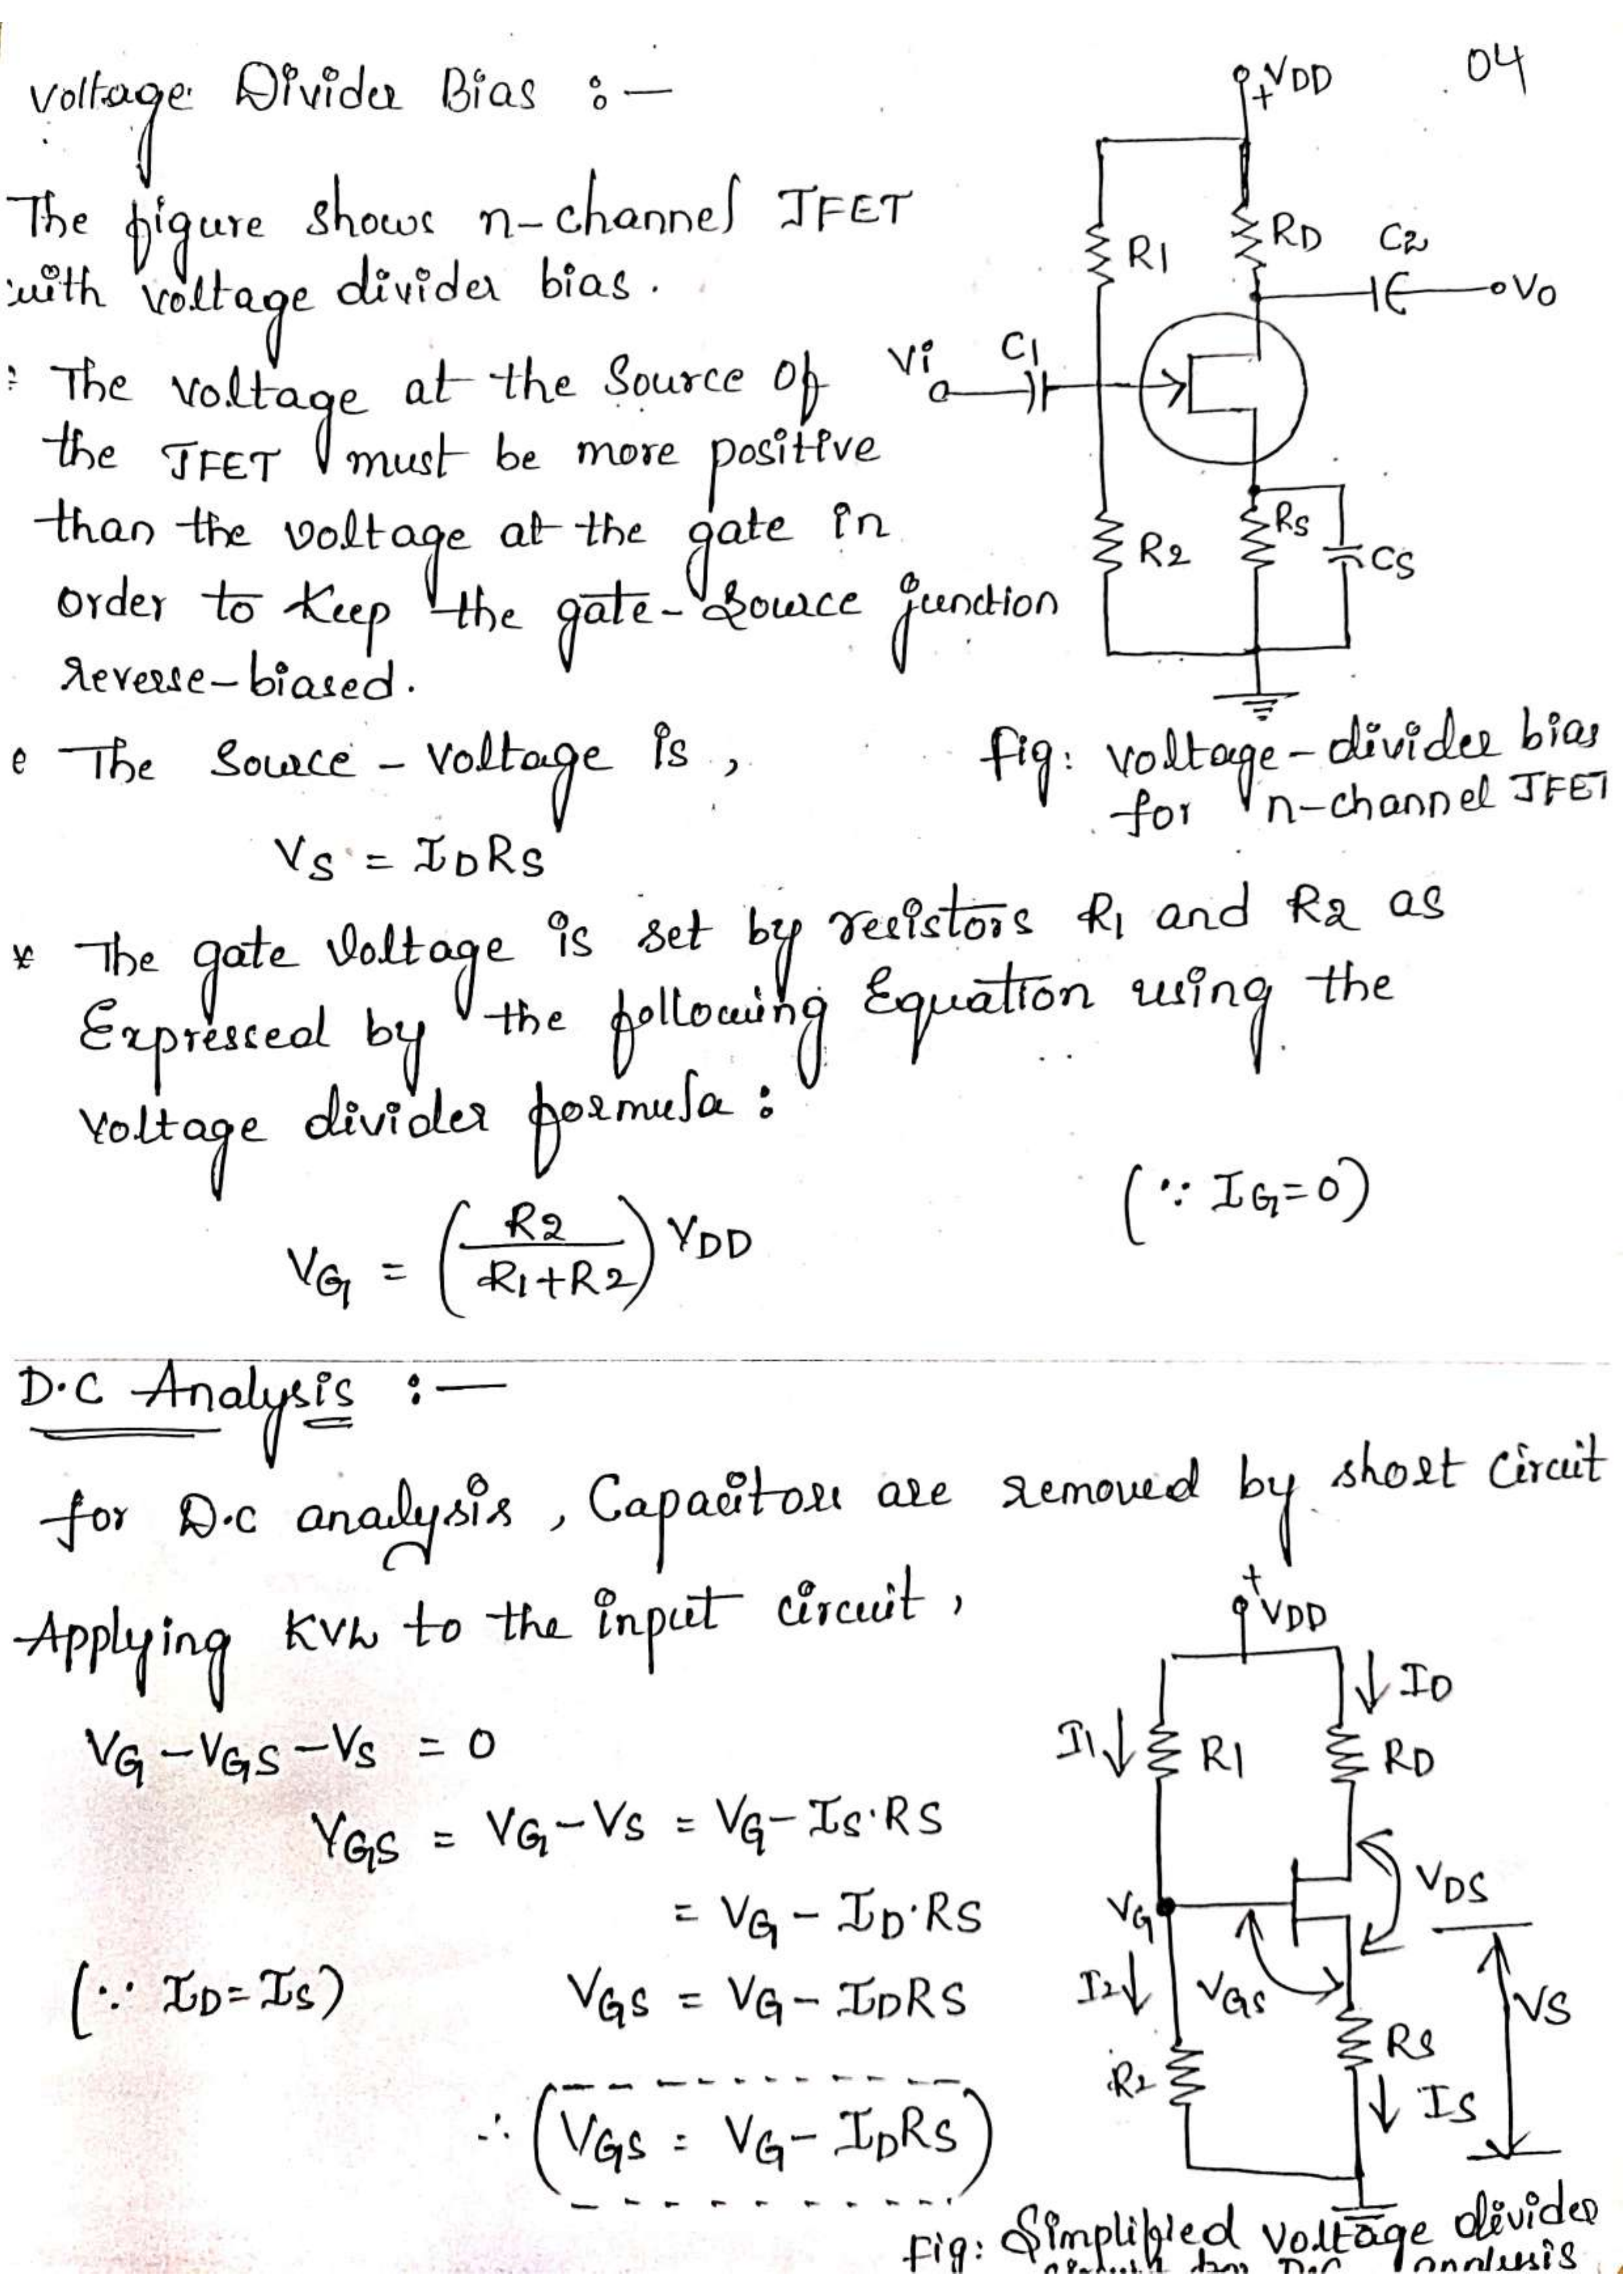 04
Voltage Divider Bias :-
+VDD
The figure shows n-channel JFET
with voltage divider bias.
R1
RD
C2
Vo
Vi
C1
The voltage at the Source of
the JFET must be more positive
than the voltage at the gate in
order to keep the gate-source junction
reverse-biased.
R2
RS
CS
fig: voltage-divider bias
for n-channel JFET
The source-voltage is,
VS = IDRS
* The gate voltage is set by resistors R1 and R2 as
Expressed by the following Equation using the
voltage divider formula:
(∵ IG=0)
VG = (R2/R1+R2) VDD
D.C Analysis :-
for D.C analysis, Capacitors are removed by short circuit
Applying KVL to the input circuit,
VG-VGS-VS = 0
VGS = VG-VS = VG-IS.RS
= VG - ID.RS
(∵ ID=IS) VGS = VG-IDRS
∴ (VGS = VG-IDRS)
+VDD
I1
R1
ID
RD
VG
VDS
I2
VGS
VS
R2
RS
IS
Fig: Simplified voltage divider
circuit for D.C analysis